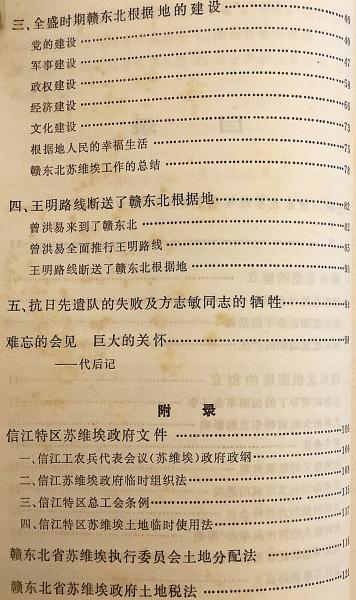 三、全盛时期赣东北根据地的建设……40
党的建设……40
军事建设……47
政权建设……54
经济建设……60
文化建设……73
根据地人民的幸福生活……75
赣东北苏维埃工作的总结……78
四、王明路线断送了赣东北根据地……82
曾洪易来到了赣东北……82
曾洪易全面推行王明路线……85
王明路线断送了赣东北根据地……90
五、抗日先遣队的失败及方志敏同志的牺牲……94
难忘的会见 巨大的关怀……98
——代后记
附 录
信江特区苏维埃政府文件……106
一、信江工农兵代表会议(苏维埃)政府政纲……106
二、信江苏维埃政府临时组织法……108
三、信江特区总工会条例……115
四、信江特区苏维埃土地临时使用法……117
赣东北省苏维埃执行委员会土地分配法……
赣东北省苏维埃政府土地税法……